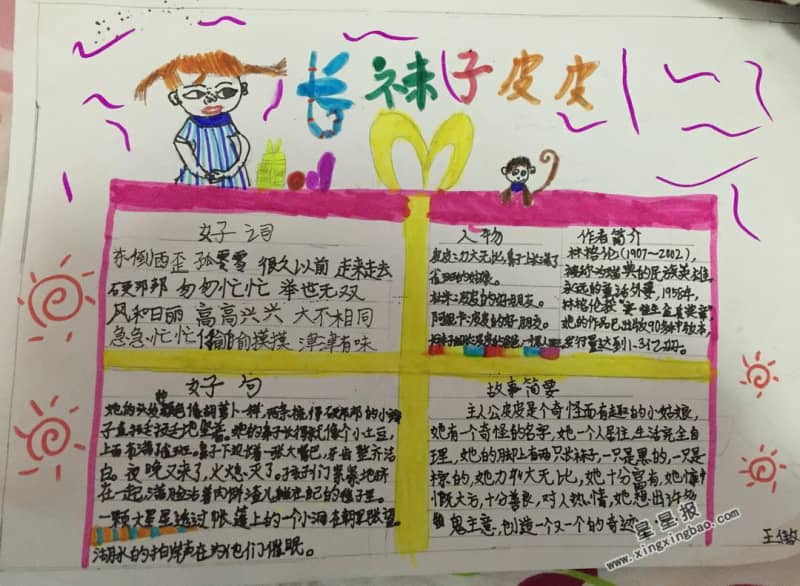 长袜子皮皮
好词
东倒西歪 孤零零 很久以前 走来走去
硬邦邦 匆匆忙忙 举世无双
风和日丽 高高兴兴 大不相同
急急忙忙 偷偷摸摸 津津有味
人物
皮皮:力大无比,鼻子上长满了
雀斑的姑娘。
皮皮的好朋友。
皮皮的好朋友。
作者简介
林格伦(1907~2002),
被称为瑞典的民族英雄,
永远的童话外婆,1958年,
林格伦获"安徒生金质奖章"
她的作品已出版90多种文本,
发行量达到1.3亿册。
好句
她的头发颜色像胡萝卜一样,两条梳得硬邦邦的小辫
子直挺挺地竖着。她的鼻子长得就像个小土豆,
上面布满雀斑。鼻子下边长着一张大嘴巴,牙齿整齐洁
白。夜晚又来了,火熄灭了。孩子们紧紧地挤
在一起,满脸沾着肉饼渣儿躺在自己的毯子里。
一颗大星星透过帐篷上的一个小洞在朝里张望。
湖水的拍岸声在为他们催眠。
故事简要
主人公皮皮是个奇怪而有趣的小姑娘,
她有一个奇怪的名字,她一个人居住,生活完全自
理,她的脚上有两只长袜子,一只是黑的,一只是
棕的,她力大无比,她十分富有,她慷
慨大方,十分善良,对人热情,她想出许多
鬼主意,创造一个又一个的奇迹
王傲
星星报
www.xingxingbao.com